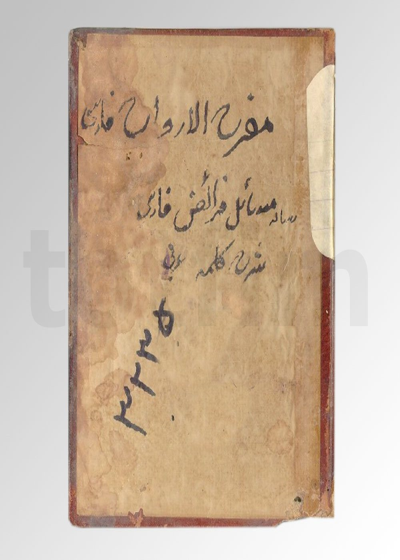 مفرح الارواح فارسی
رساله مسائل فرائض فارسی
شرح کلمه عربی